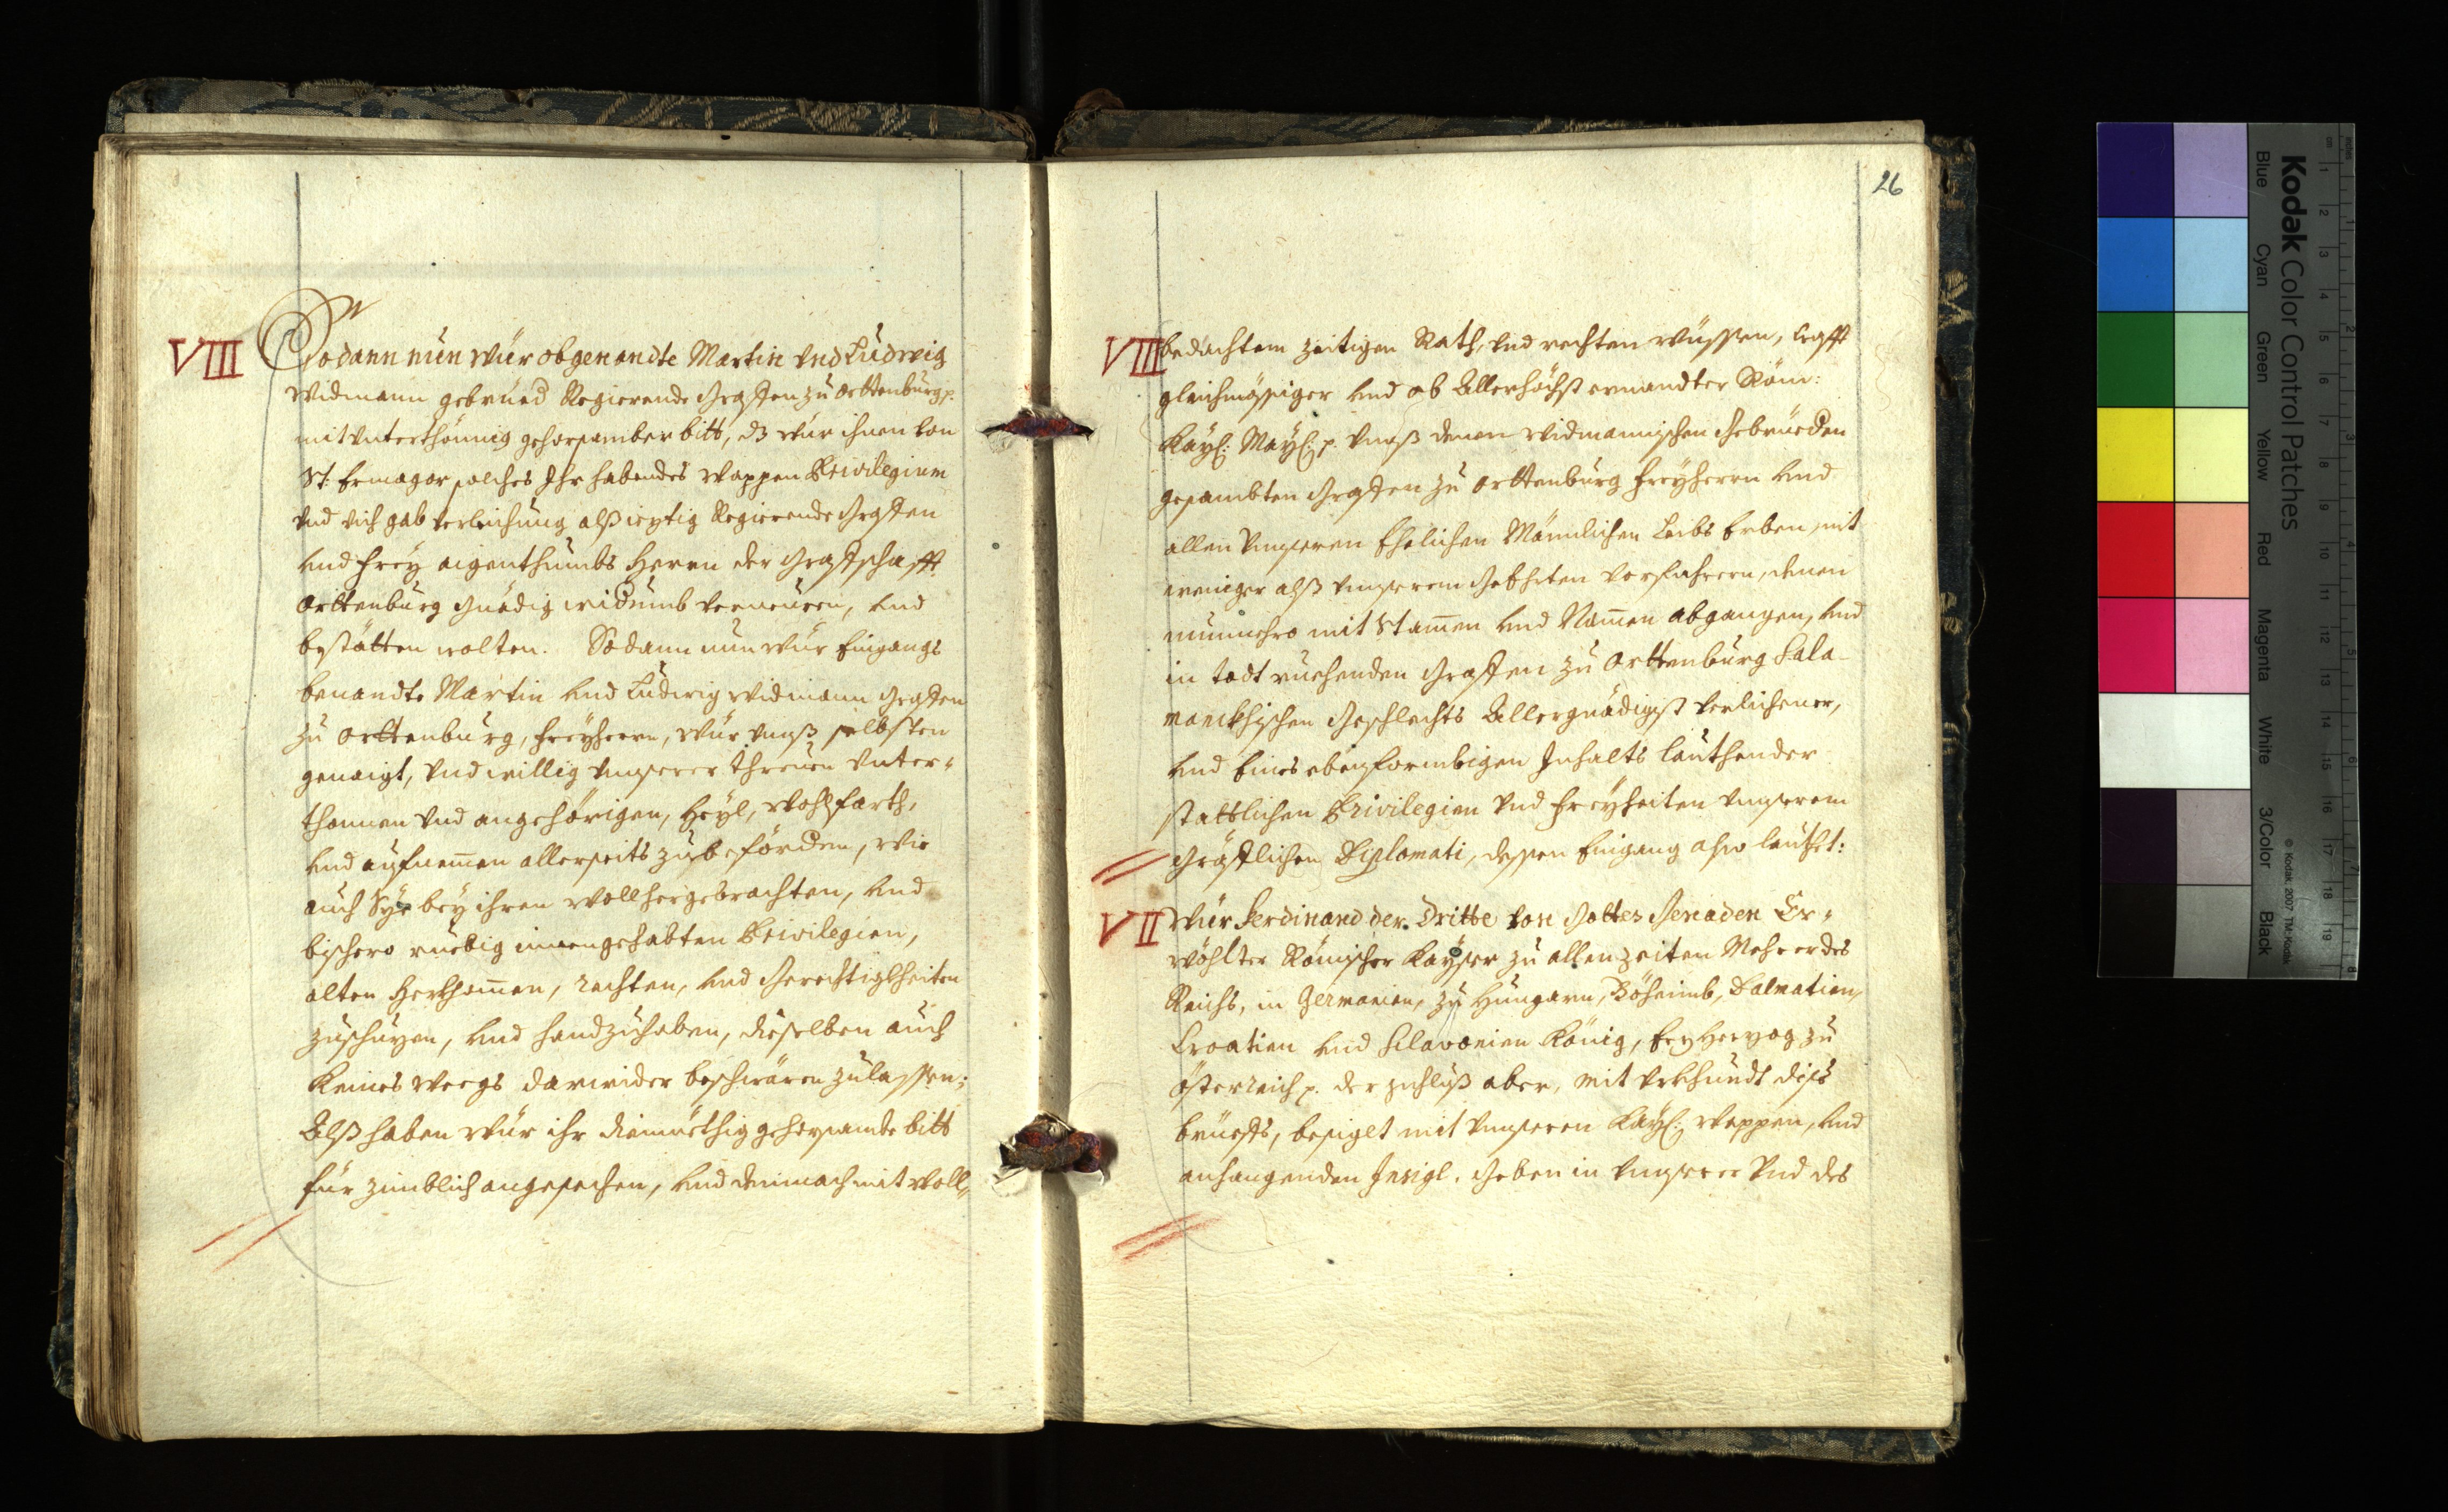 VIII
Sodann nun Wür obgenandte Martin Vnd Ludwig
Widmann gebrued Regierende Graffen zu Orttenburg p.
mit Vnterthönnig gehorsamber bitt, dz Wür ihnen von
St: Ermagor solches Ihr habendes Wappen Privilegium
Vnd gab verleichung alß ieztig Regierende Graffen
Vnd frey aigenthumbs Herrn der Graffschafft
Orttenburg Gnädig widumb verneuren, Vnd
bestätten wolten. Sodann nun Wür Eingangs
benandte Martin Vnd Ludwig Widmann Graffen
zu Orttenburg, freyherrn, Wür Vnß selbsten
genaigt, Vnd willig Vnserer threuen Vnter-
thonnen Vnd angehörigen, Heyl, Wohlfarth,
Vnd aufnemmen allerseits zubeförden, Wie
auch Sye bey ihren Wollhergebrachten, Vnd
bishero ruebig innengehabten Privilegien,
alten Herkhommen, rechten, Vnd Gerechtigkheiten
zuschuzen, Vnd handzuhaben, dieselben auch
Keines Weegs darwider beschwären zulassen;
Alß haben Wür ihr diemüethig gehorsambe bitt
für zimblich angesechen, Vnd demnach mit Woll-
26
VIII
bedachtem zeitigen Rath, Vnd rechten Wüssen, Crafft
gleichmässiger Vnd ob Allerhöchst ernandter Röm:
Kayl: Mayl: p. Vnß denen Widmannischen Gebrüeden
gesambten Graffen zu Orttenburg freyherrn Vnd
allen Vnseren Ehelichen Männlichen Leibs Erben, nit
weniger alß Vnserem Vorfahrern, denen
nunmehro mit Stammen Vnd Nammen abgangen, Vnd
in todt ruehenden Graffen zu Orttenburg Sala-
manckhischen Geschlechts Allergnädigist verlichener,
Vnd Eines ebenformbigen Inhalts lauthender
stattlichen Privilegien Vnd freyheiten Vnserem
Gräfflichen Diplomati, dessen Eingang also lauthet:
VII
Wür Ferdinand der Dritte Von Gottes Genaden Er-
wöhlter Römischer Kayser zu allen zeiten Mehrer des
Reichs, in Germanien, zu Hungarn, Böheimb, Dalmatien,
Croatien Vnd Sclavonien König, Erzherzog zu
Österreich p. der schluß aber, mit Vrkhundt diss
brieffs, besiglet mit Vnseren Kayl: Wappen, Vnd
anhangenden Insigl. Geben in Vnserer Vnd des
Kodak Color Control Patches
Blue Cyan Green Yellow Red Magenta White 3/Color Black
© Kodak, 2007 TM: Kodak